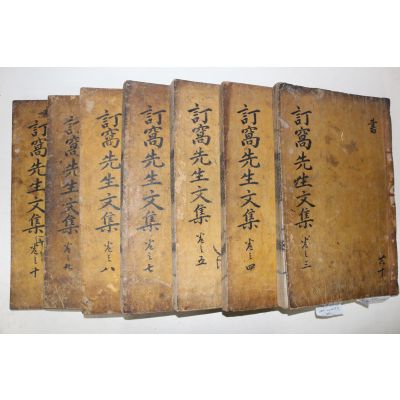 書
訂窩先生文集 卷之三
共十
訂窩先生文集 卷之四
訂窩先生文集 卷之五
訂窩先生文集 卷之七
訂窩先生文集 卷之八
訂窩先生文集 卷之九
訂窩先生文集 卷之十